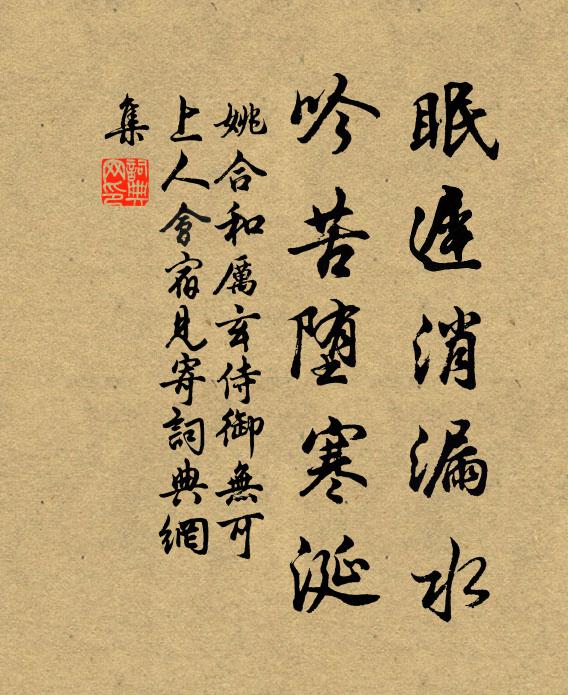 眠遲消漏水
吟苦墮寒涎
姚合和厲玄侍御無可
上人會宿見寄詞典網
集
詞典
网印